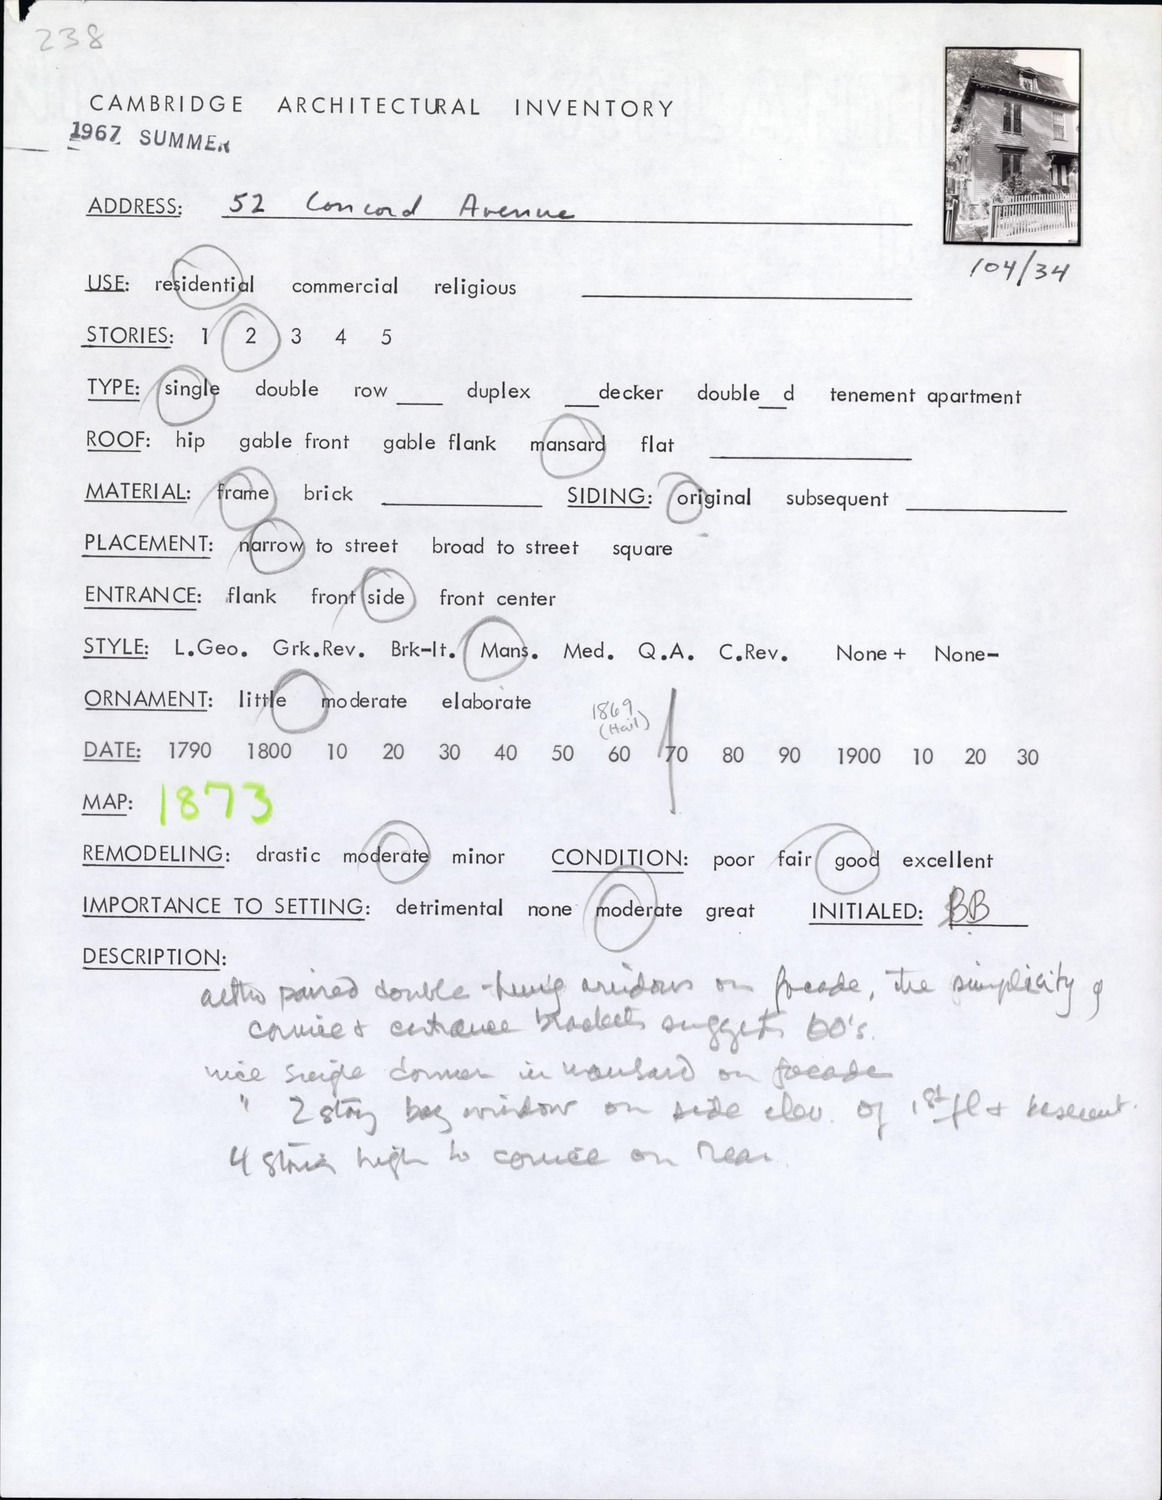 238
CAMBRIDGE ARCHITECTURAL INVENTORY
1967 SUMMER
ADDRESS: 52 Concord Avenue
104/34
USE: residential commercial religious
STORIES: 1 2 3 4 5
TYPE: single double row ____ duplex ___decker double__d tenement apartment
ROOF: hip gable front gable flank mansard flat
MATERIAL: frame brick SIDING: original subsequent
PLACEMENT: narrow to street broad to street square
ENTRANCE: flank front side front center
STYLE: L.Geo. Grk.Rev. Brk-It. Mans. Med. Q.A. C.Rev. None+ None-
ORNAMENT: little moderate elaborate
1869
(Hail)
DATE: 1790 1800 10 20 30 40 50 60 70 80 90 1900 10 20 30
MAP: 1873
REMODELING: drastic moderate minor CONDITION: poor fair good excellent
IMPORTANCE TO SETTING: detrimental none moderate great INITIALED: BB
DESCRIPTION:
altho paired double-hung windows on facade, the simplicity of
cornice & entrance brackets suggests 60's.
nice single dormer in mansard on facade
" 2 story bay window on side elev. of 1st fl & basement.
4 stories high to cornice on rear.